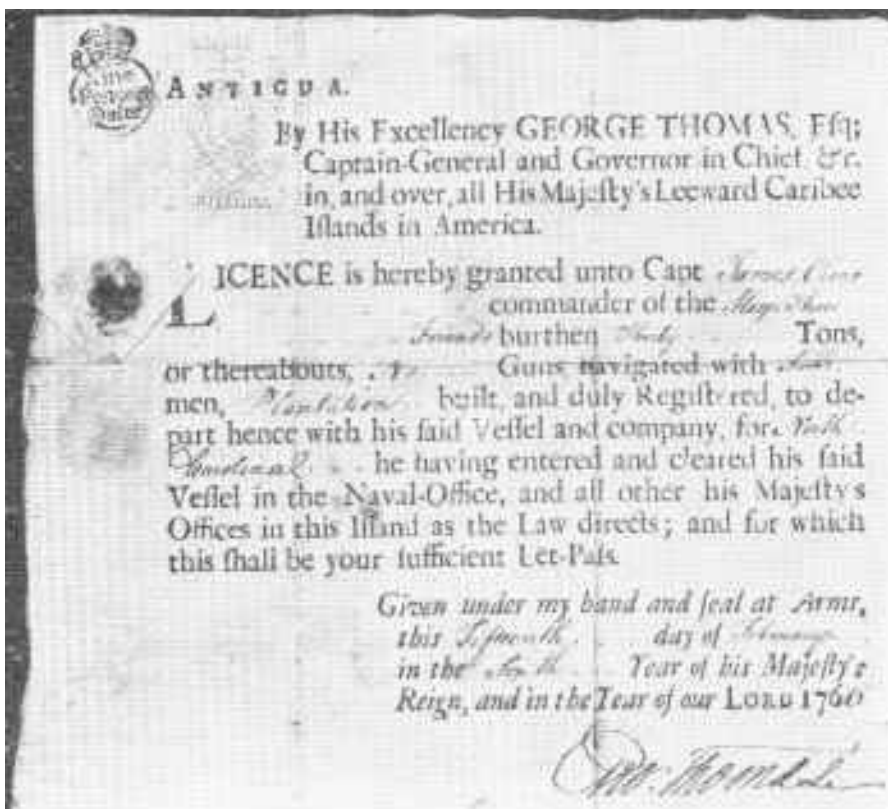 ANTIGUA.
By His Excellency GEORGE THOMAS, Eſq;
Captain-General and Governor in Chief &c.
in, and over, all His Majeſty's Leeward Caribee
Iſlands in America.
LICENCE is hereby granted unto Capt James
commander of the
Friends burthen Tons,
or thereabouts, No Guns navigated with four
men, Plantation built, and duly Regiſtered, to de-
part hence with his ſaid Veſſel and company, for North
Carolina he having entered and cleared his ſaid
Veſſel in the Naval-Office, and all other his Majeſty's
Offices in this Iſland as the Law directs; and for which
this ſhall be your ſufficient Let-Paſs.
Given under my hand and ſeal at Arms,
this Fifteenth day of February
in the Year of his Majeſty's
Reign, and in the Year of our LORD 1760
Geo: Thomas